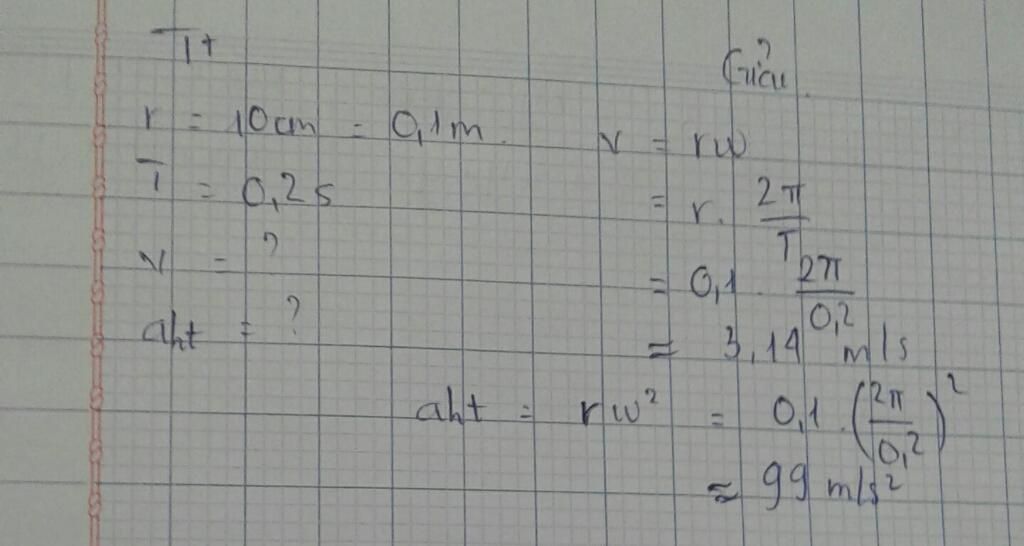 Tt
Giải
r = 10cm = 0,1m.
T = 0,2s
v = ?
aht = ?
v = rω
= r. 2π/T
= 0,1. 2π/0,2
= 3,14 m/s
aht = rω² = 0,1.(2π/0,2)²
≈ 99 m/s²